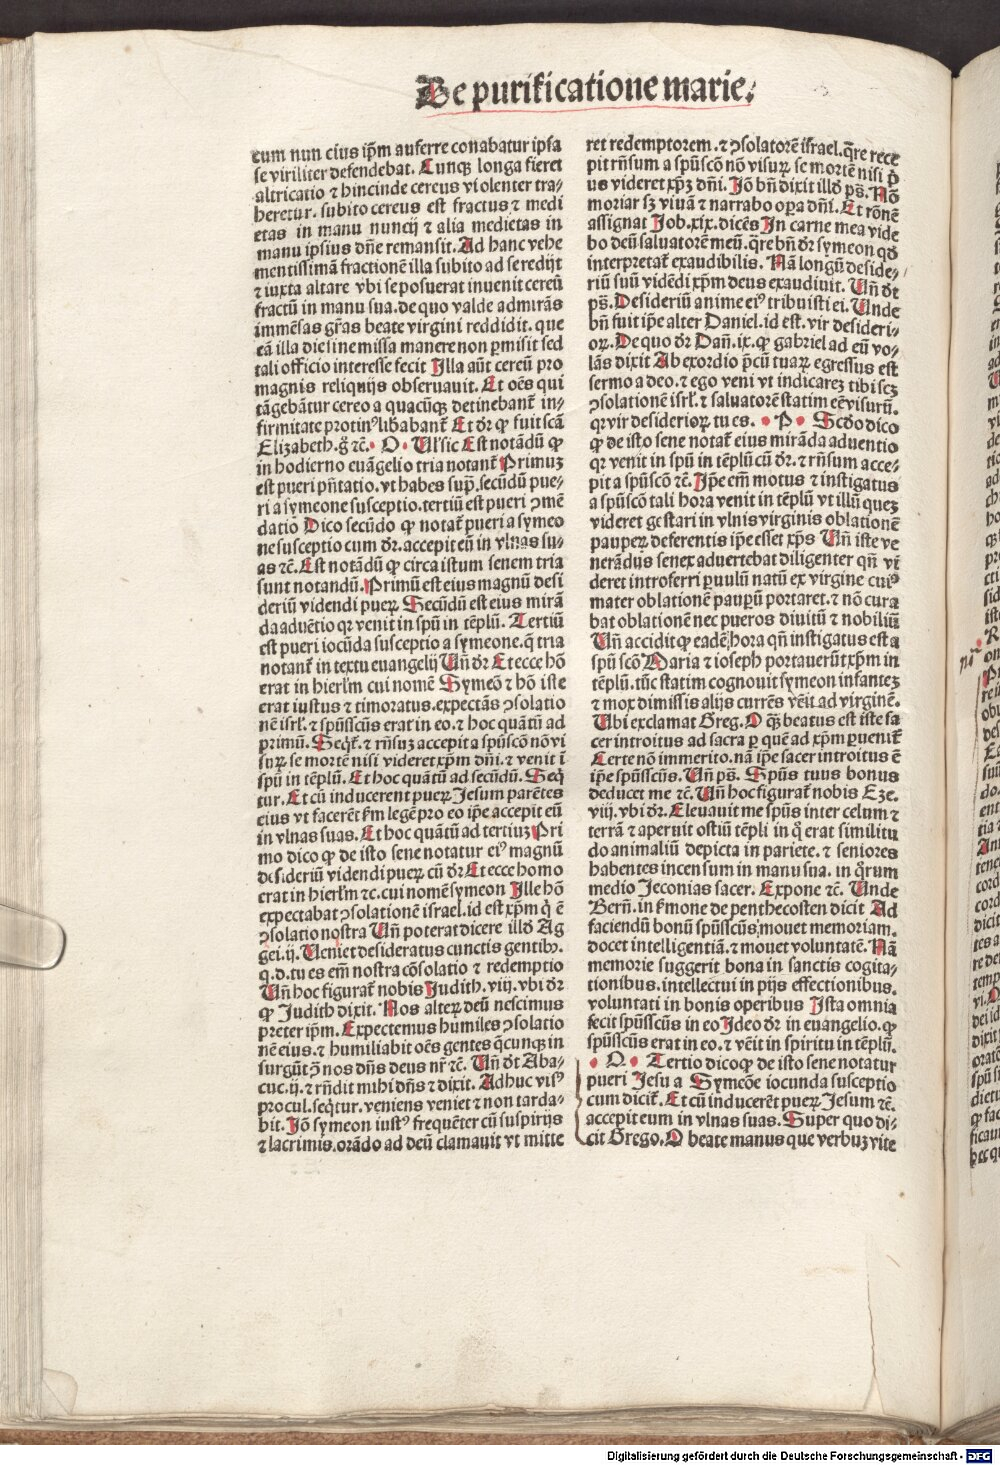 De purificatione marie.
cum nuncius ip̄m auferre conabatur ipsa
se viriliter defendebat. Cunqꝫ longa fieret
altricatio ⁊ hincinde cereus violenter tra-
heretur. subito cereus est fractus ⁊ medi
etas in manu nuncij ⁊ alia medietas in
manu ipsius dn̄e remansit. Ad hanc vehe
mentissimā fractionē illa subito ad se redijt
⁊ iuxta altare vbi se posuerat inuenit cereū
fractū in manu sua. de quo valde admirās
immēsas gr̄as beate virgini reddidit. que
eā illa die sine missa manere non ꝑmisit sed
tali officio interesse fecit Illa aūt cereū pro
magnis reliquijs obseruauit. Et oēs qui
tāgebātur cereo a quacūqꝫ detinebant̄ in-
firmitate protinꝰ lib̄abant̄ Et dr̄ ꝙ fuit scā
Elizabeth. g̊ ⁊c̄. O. Ul̓ sic Est notādū ꝙ
in hodierno euāgelio tria notant̄ Primuꝫ
est pueri pn̄tatio. vt habes sup̄. secūdū pue-
ri a symeone susceptio. tertiū est pueri ꝯmē
datio Dico secūdo ꝙ notat̄ pueri a symeo
ne susceptio cum dr̄. accepit eū in vlnas su-
as ⁊c̄. Est notādū ꝙ circa istum senem tria
sunt notandū. Primū est eius magnū desi
deriū videndi pueꝝ Secūdū est eius mirā
da aduētio qꝛ venit in spū in tēplū. Tertiū
est pueri iocūda susceptio a symeone. q̄ tria
notant̄ in textu euangelij Un̄ dr̄ Et ecce hō
erat in hierl̄m cui nomē Symeō ⁊ hō iste
erat iustus ⁊ timoratus. expectās ꝯsolatio
nē isrl̄. ⁊ spūsscūs erat in eo. ⁊ hoc quātū ad
primū. Seqt̄. ⁊ rn̄suꝫ accepit a spūscō nō vi
suꝝ se mortē nisi videret xp̄m dn̄i. ⁊ venit ī
spū in tēplū. Et hoc quātū ad secūdū. Seq̄
tur. Et cū inducerent pueꝝ Jesum parētes
eius vt facerēt ẜm legē pro eo ip̄e accepit eū
in vlnas suas. Et hoc quātū ad tertiuꝫ Pri
mo dico ꝙ de isto sene notatur eiꝰ magnū
desideriū videndi pueꝝ cū dr̄. Et ecce homo
erat in hierl̄m ⁊c. cui nomē symeon Ille hō
expectabat ꝯsolationē israel. id est xp̄m q̄ ē
ꝯsolatio nostra Un̄ poterat dicere illđ Ag
gei. ij. Ueniet desideratus cunctis gentibꝰ.
q. d. tu es em̄ nostra cōsolatio ⁊ redemptio
Un̄ hoc figurat̄ nobis Judith. viij. vbi dr̄
ꝙ Judith dixit. Nos alteꝝ deū nescimus
preter ip̄m. Expectemus humiles ꝯsolatio
nē eius. ⁊ humiliabit oēs gentes q̄cunqꝫ in
surgūt ꝯ̄ nos dn̄s deus nr̄ ⁊c̄. Un̄ dt̄ Aba-
cuc. ij. ⁊ rn̄dit mihi dn̄s ⁊ dixit. Adhuc visꝰ
procul. seq̄tur. veniens veniet ⁊ non tarda-
bit. Jō symeon iustꝰ frequēter cū suspirijs
⁊ lacrimis. orādo ad deū clamauit vt mitte
ret redemptorem. ⁊ ꝯsolatorē isrl̄ael. q̄re rece
pit rn̄sum a spūscō nō visuꝝ se mortē nisi p̄
us videret xp̄ꝫ dn̄i. Jō bn̄ dixit illđ ps̄. Nō
moriar sꝫ viuā ⁊ narrabo oꝑa dn̄i. Et rōnē
assignat Job. xix. dicēs In carne mea vide
bo deū saluatorē meū. q̄re bn̄ dr̄ symeon qđ
interpretat̄ exaudibilis. Nā longū deside-
riū suū vidēdi xp̄m deus exaudiuit. Un̄ dt̄
ps̄. Desideriū anime eiꝰ tribuisti ei. Unde
bn̄ fuit ip̄e alter Daniel. id est. vir desideri-
oꝝ. De quo dr̄ Dan̄. ix. ꝙ gabriel ad eū vo-
lās dixit Ab exordio p̄cū tuaꝝ egressus est
sermo a deo. ⁊ ego veni vt indicareꝫ tibi scꝫ
ꝯsolationē isrl̄. ⁊ saluatorē statim eē visurū.
qꝛ vir desiderioꝝ tu es. P. Scđo dico
ꝙ de isto sene notat̄ eius mirāda aduentio
qꝛ venit in spū in tēplū cū dr̄. ⁊ rn̄sum acce-
pit a spūscō ⁊c̄. Ip̄e em̄ motus ⁊ instigatus
a spūscō tali hora venit in tēplū vt illū queꝫ
videret gestari in vlnis virginis oblationē
pauꝑeꝝ deferentis ip̄e esset xp̄s Un̄ iste ve
nerādꝰ senex aduertebat diligenter qn̄ vi
deret introferri ꝑuulū natū ex virgine cuiꝰ
mater oblationē pauꝑū portaret. ⁊ nō cura
bat oblationē nec pueros diuitū ⁊ nobiliū
Un̄ accidit ꝙ eadē hora qn̄ instigatus est a
spū scō Maria ⁊ ioseph portauerūt xp̄m in
tēplū. tūc statim cognouit symeon infanteꝫ
⁊ mox dimissis alijs currēs vēit ad virginē.
Ubi exclamat Greg. O qꝫ beatus est iste sa
cer introitus ad sacra ꝑ quē ad xp̄m ꝑuenit̄
Certe nō immerito. nā ip̄e sacer introitus ē
ip̄e spūsscūs. Un̄ ps̄. Spūs tuus bonus
deducet me ⁊c̄. Un̄ hoc figurat̄ nobis Eze.
viij. vbi dr̄. Eleuauit me spūs inter celum ⁊
terrā ⁊ aperuit ostiū tēpli in q̄ erat similitu
do animaliū depicta in pariete. ⁊ seniores
habentes incensum in manu sua. in q̄rum
medio Jeconias sacer. Expone ⁊c̄. Unde
Bern̄. in ẜmone de penthecosten dicit Ad
faciendū bonū spūsscūs mouet memoriam.
docet intelligentiā. ⁊ mouet voluntatē. Nā
memorie suggerit bona in sanctis cogita-
tionibus. intellectui in pijs effectionibus.
voluntati in bonis operibus Ista omnia
fecit spūsscūs in eo Ideo dr̄ in euangelio. ꝙ
spūsscūs erat in eo. ⁊ vēit in spiritu in tēplū.
Q. Tertio dico ꝙ de isto sene notatur
pueri Jesu a Symeōe iocunda susceptio
cum dicit̄. Et cū inducerēt pueꝝ Jesum ⁊c̄.
accepit eum in vlnas suas. Super quo di-
cit Grego. O beate manus que verbuꝫ vite
Digitalisierung gefördert durch die Deutsche Forschungsgemeinschaft - DFG